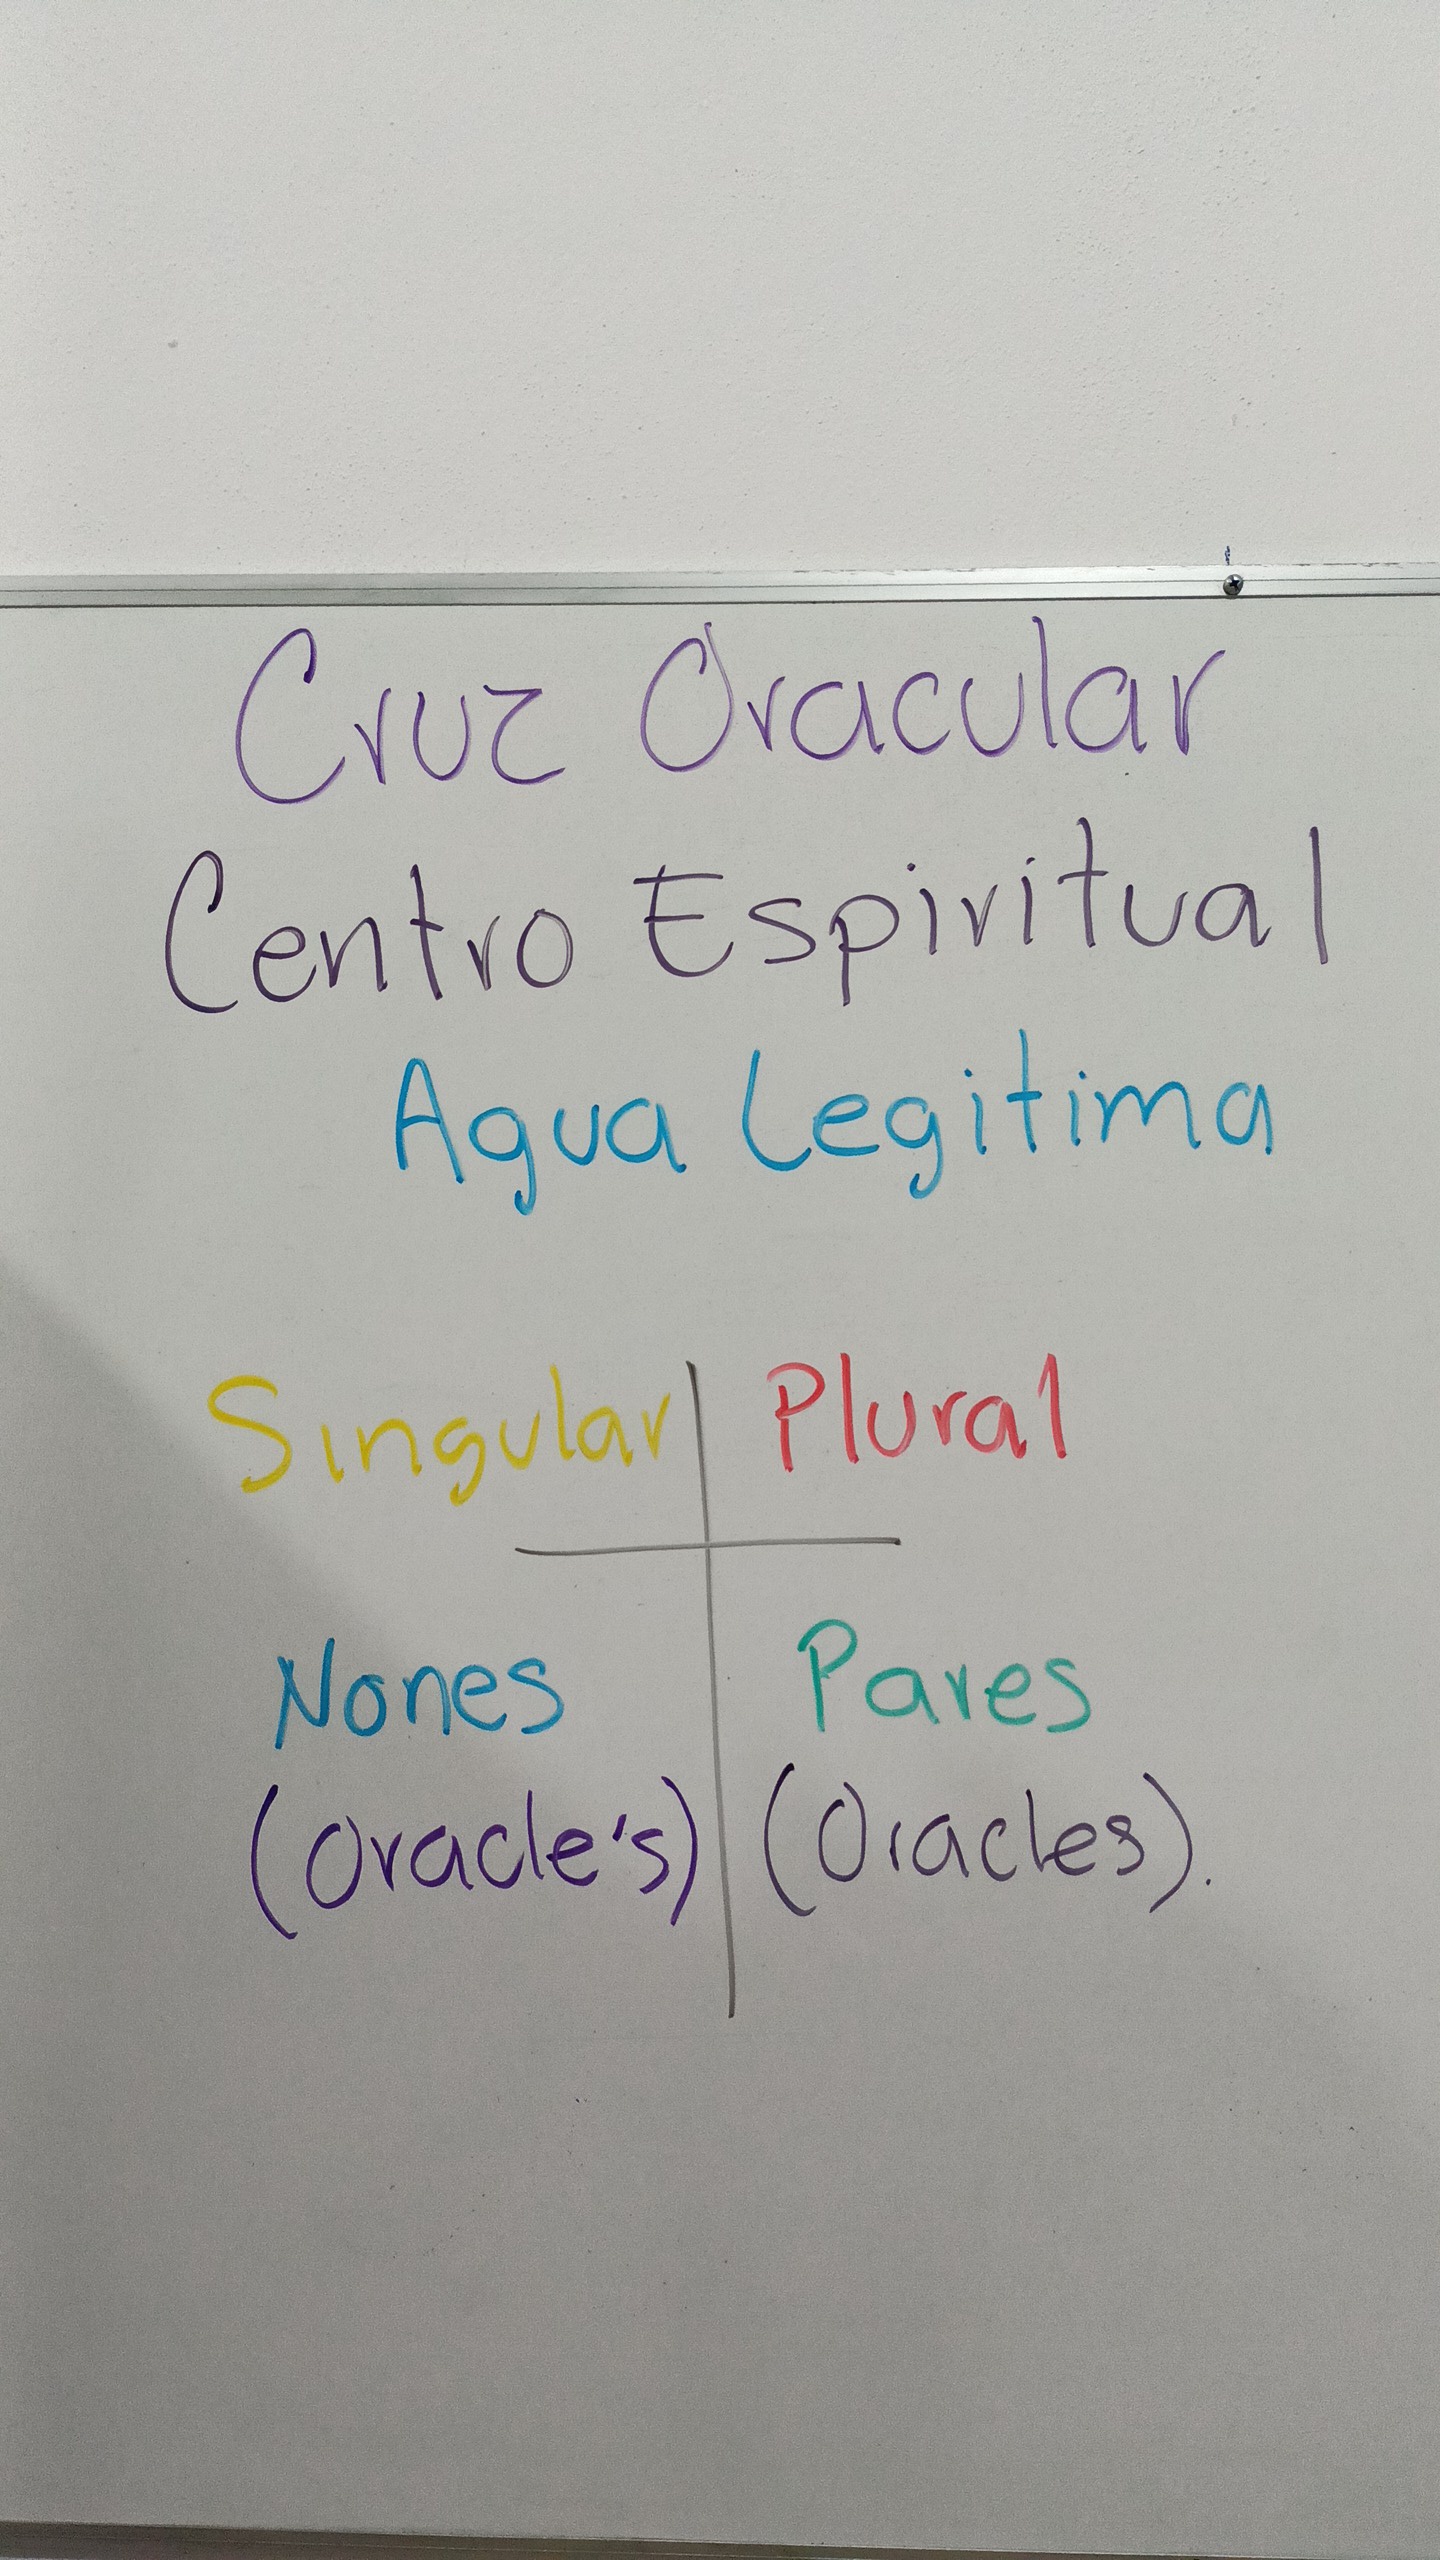 Cruz Oracular
Centro Espiritual
Agua Legitima
Singular Plural
Nones Pares
(Oracle's) (Oracles).